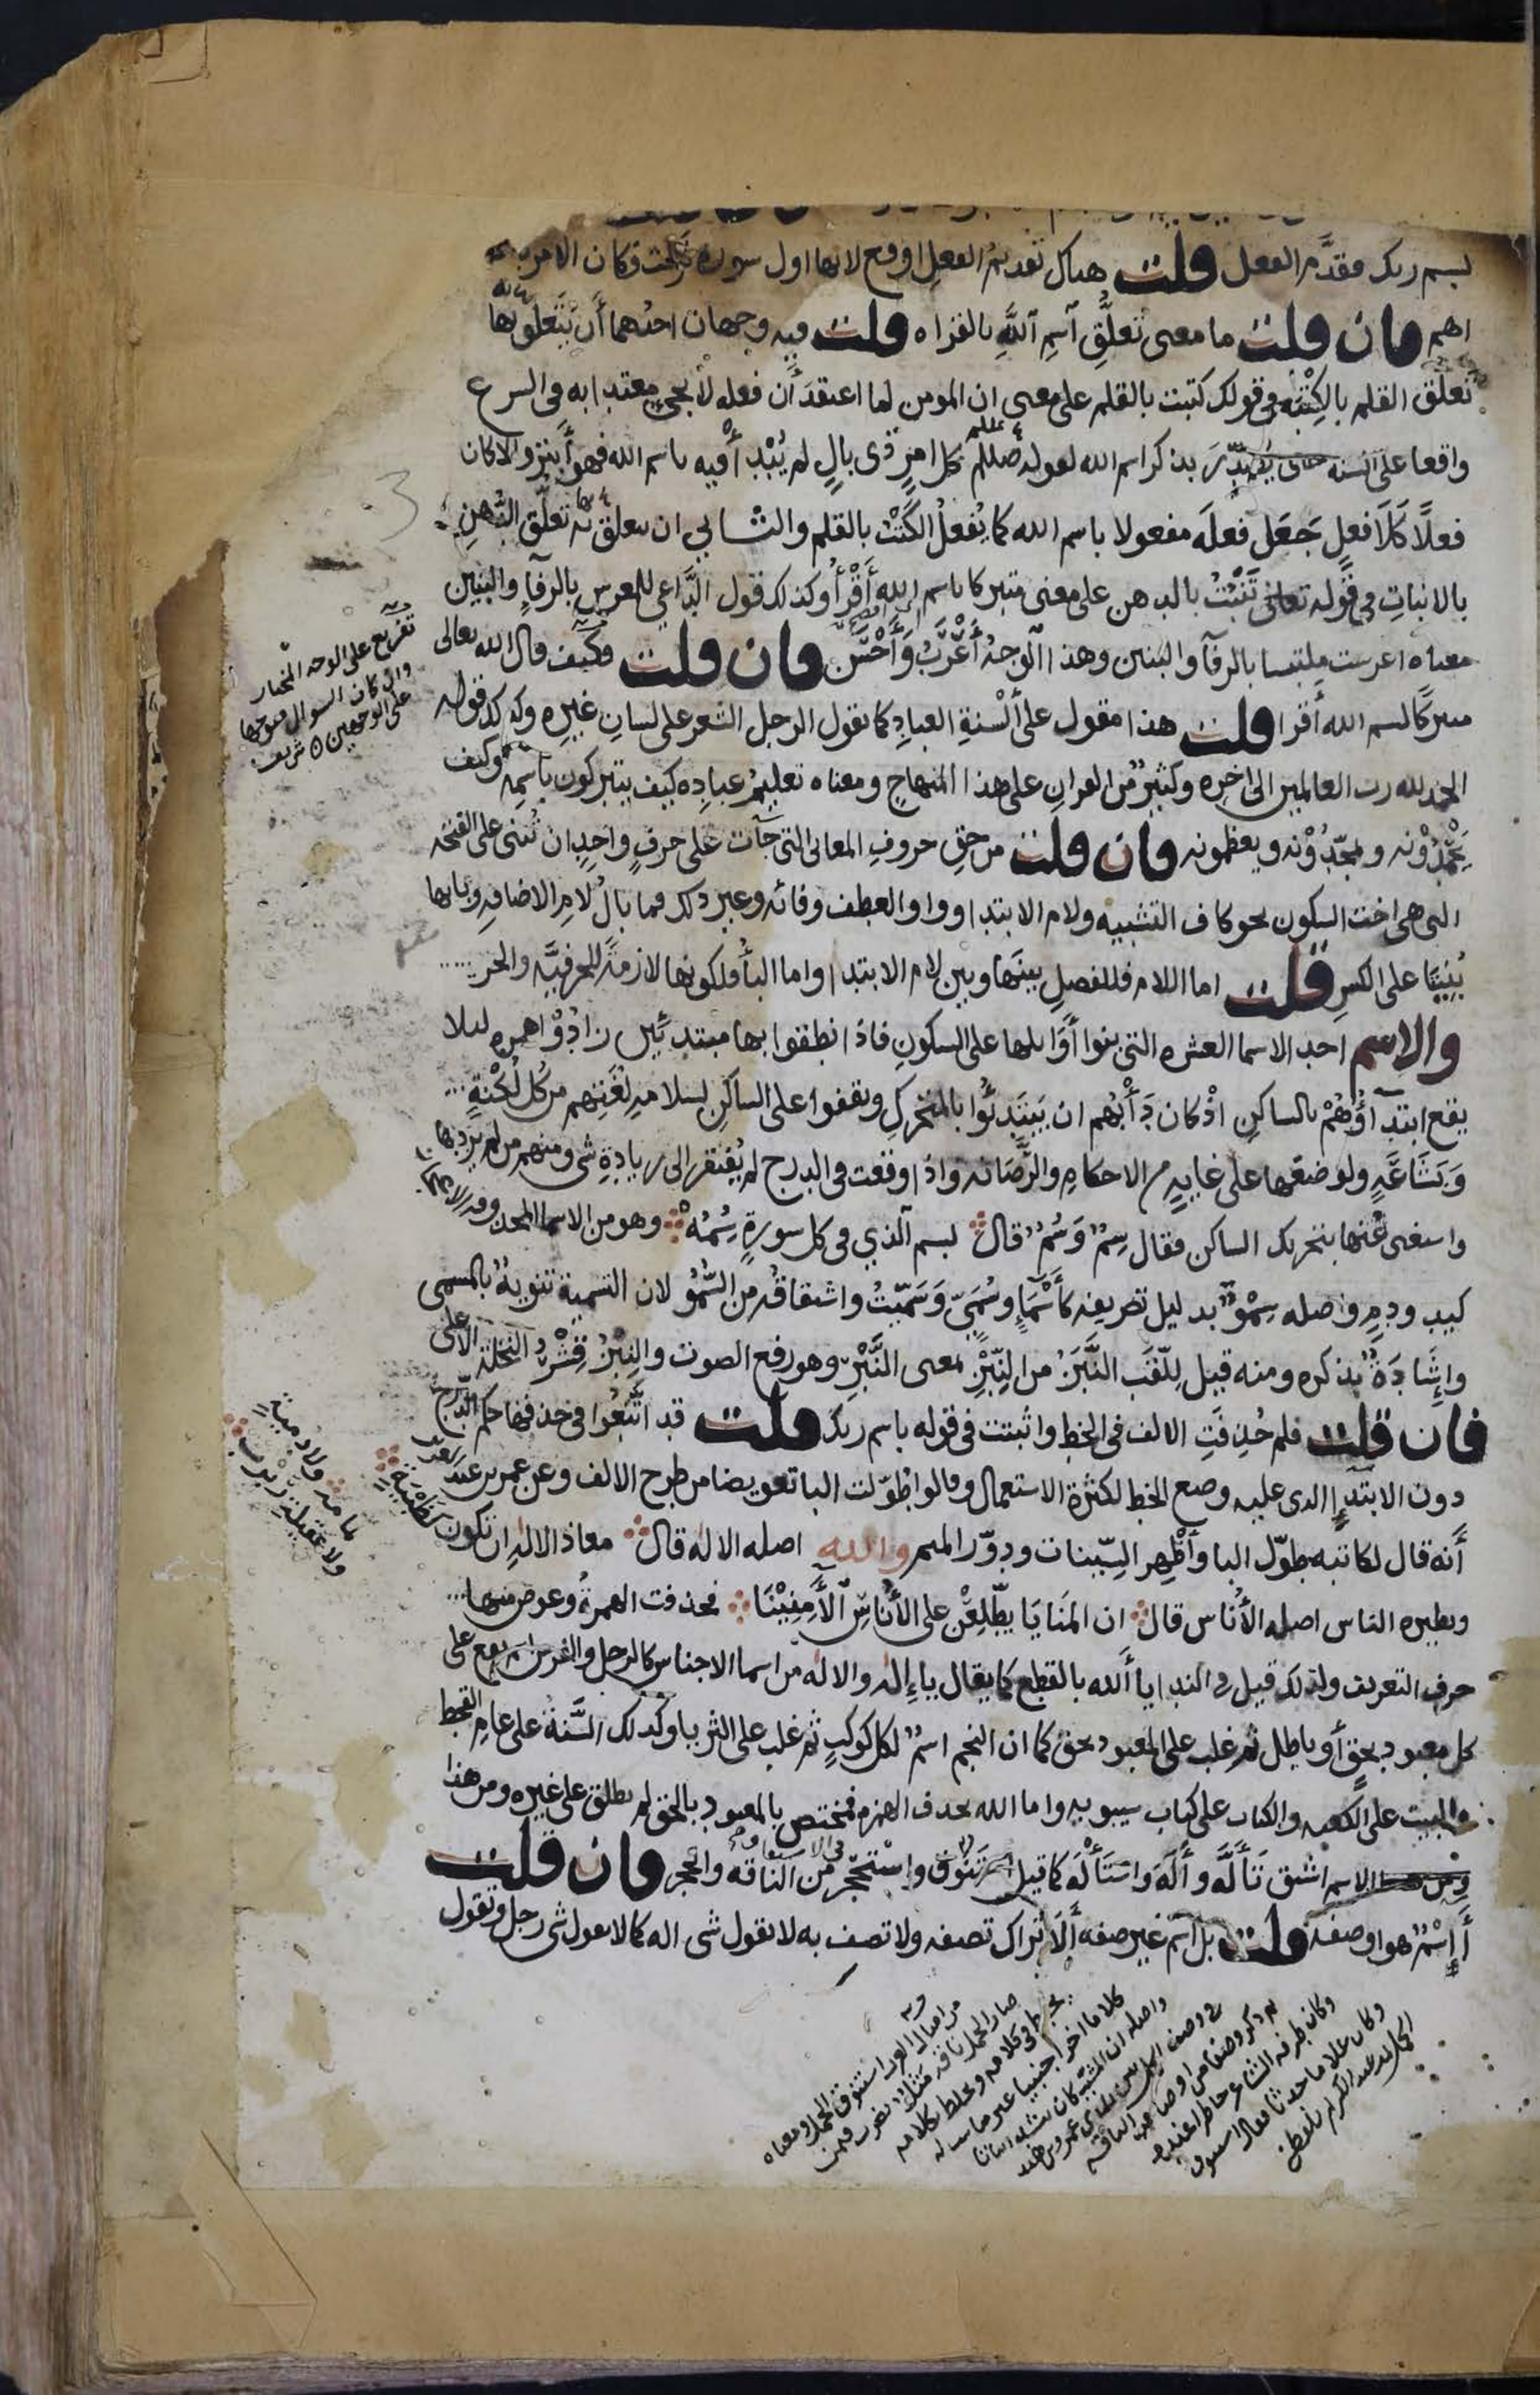 بسم ربك فقدم الفعل قلت هناك تقديم الفعل اوقع لانها اول سورة نزلت فكان الامر
اهم فان قلت ما معنى تَعلُّقِ اسمِ اللهِ بالقراه قلت فيه وجهان احدهما أن يتعلق بها
تعلُّق القلم بالكِتْبَه فى قولك كتبت بالقلم على معنى ان المومن لما اعتقدَ أن فعله لا يجى معتدا به فى الشرع
واقعا على السنه حتى يُصدَّرَ بذكر اسم الله لقوله صللم كل امرٍ ذى بالٍ لم يُبْدأ فيه باسم الله فهو أبتر والا كان
فعلًا كَلَا فعلٍ جَعَل فعلَه مفعولا باسم الله كما يُفعلُ الكَتْبُ بالقلم والثانى ان يتعلق بها تعلُّق الدُّهنِ
بالانباتِ فى قوله تعالى تَنْبُتُ بالدهن على معنى متبركا باسم الله أَقْرَأُ وكذلك قول الدَّاعِي للمعرس بالرفآءِ والبنين
معناه اعرست ملتبسا بالرفآ والبنين وهذا الوجهُ أَعْرَبُ وَأَحْسَن فان قلت فكيف قال الله تعالى
متبركًا بسم الله أقرا قلت هذا مقول على أَلْسنةِ العبادِ كما يقول الرجل الشعر على لسانِ غيرِهِ وكذلك قوله
الحمد لله رب العالمين الى اخره وكثيرٌ من القرانِ على هذا المنهاجِ ومعناه تعليمُ عبادِه كيف يتبركون باسمِه وكيف
يَحْمَدُوْنه ويمجّدُوْنه ويعظمونه فان قلت من حقِ حروفِ المعانى التى جآت على حرفٍ واحدٍ ان تُبنى على الفتحه
التى هى اخت السكون نحو كاف التشبيه ولام الابتدا وواو العطف وفائه وغير ذلك فما بالُ لامِ الاضافهِ وبايها
بُنِيَتَا على الكسر قلت اما اللام فللفصلِ بينَها وبين لام الابتدا واما البأ فلكونها لازمةً للحرفيَّه والجر
والاسم احد الاسما العشره التى بنوا أَوَايلها على السكونِ فاذا نطقوا بها مبتدئين زادُوْا همزه ليلا
يقع ابتدآؤُهُمْ بالساكنِ اذْ كان دَأْبُهم ان يَبتَدِئُوا بالمتحركِ ويقفوا على الساكنِ لسلامه لغَتِهم من كل لُكْنةٍ
وَبَشَاعَةٍ ولوضعها على غايهٍ من الاحكامِ والرَّصَانه واذا وقعت فى الدرج لم يُفتقر الى زيادةِ شى ومنهم من لم يزدها
واستغنى عُنها بتحريك الساكن فقال سِمٌ وَسُمٌ قال بسم الذي فى كل سورةٍ سِمُهْ وهو من الاسما المحذوفه الاعجاز
كيدٍ ودمٍ واصله سِمْوٌ بدليل تصريفه كأَسْمَآءٍ وسُمَيٍّ وَسَمّيْتُ واشتقاقُه من السُّمُوِّ لان التسمية تنويهٌ بالمسمى
وإشَادَةٌ بذكره ومنه قيل لِلَّقَب النَّبَزُ من النِّبْزِ بمعنى النَّبْرِ وهو رفع الصوت والنِبْزُ قِشْرُ النخلة الأعلى
فان قلت فلم حُذِفَتِ الالف فى الخط واثبتت فى قوله باسم ربك قلت قد اتَّبَعُوا فى حذفها حكم الدَّرْجِ
دون الابتدإِ الذى عليه وضع الخط لكثرة الاستعمال وقالوا طُوّلت البا تعويضا من طرح الالف وعن عمر بن عبد
أنه قال لكاتبه طوّل البا وأَظْهِر السِّينات ودوّر الميم والله اصله الالاه قال معاذ الالهِ ان تكون كظَبْيَةٍ
ونظيره الناس اصله الأُناس قال ان المنَايَا يطّلِعْنَ على الأُناسِ الآمِنِيْنَا فحذفت الهمزةُ وعوض منها
حرف التعريف ولذلك قيل فى الندا يا أَلله بالقطع كما يقال يا إله والاله من اسما الاجناس كالرجل والفرس اسم يقع على
كل معبود بحقٍ أو باطل ثم غلب على المعبود بحق كما ان النجم اسمٌ لكل كوكبٍ ثم غلب على الثريا وكذلك السَّنةُ على عامِ القحط
والبيت على الكعبه والكتاب على كتاب سيبويه واما الله بحذف الهمزه فمختص بالمعبود بالحق لم يطلق على غيره ومن هذا
الاسم اشتق تَأَلَّهَ وأَلَهَ واسْتَأْلَهَ كما قيل استَنْوَق واستحْجَر من الناقه والحجر فان قلت
أَإسْمٌ هو او صفه قلت بل اسم غير صفه أَلَا تَراك تصفه ولا تصف به لا تقول شى اله كما لا تقول شى رجل وتقول
تفريع على الوجه المختار
وان كان السوال متوجها
على الوجهين ٥ شريف
ولا دميةٍ
ولا عقيلة ربرب
من امثال العرب استنوق الجمل ومعناه
صار الجمل ناقه مَثَلٌ يضرب فيمن
يخطى فى كلامه ويخلط بكلامه
كلاما اخر اجنبيا